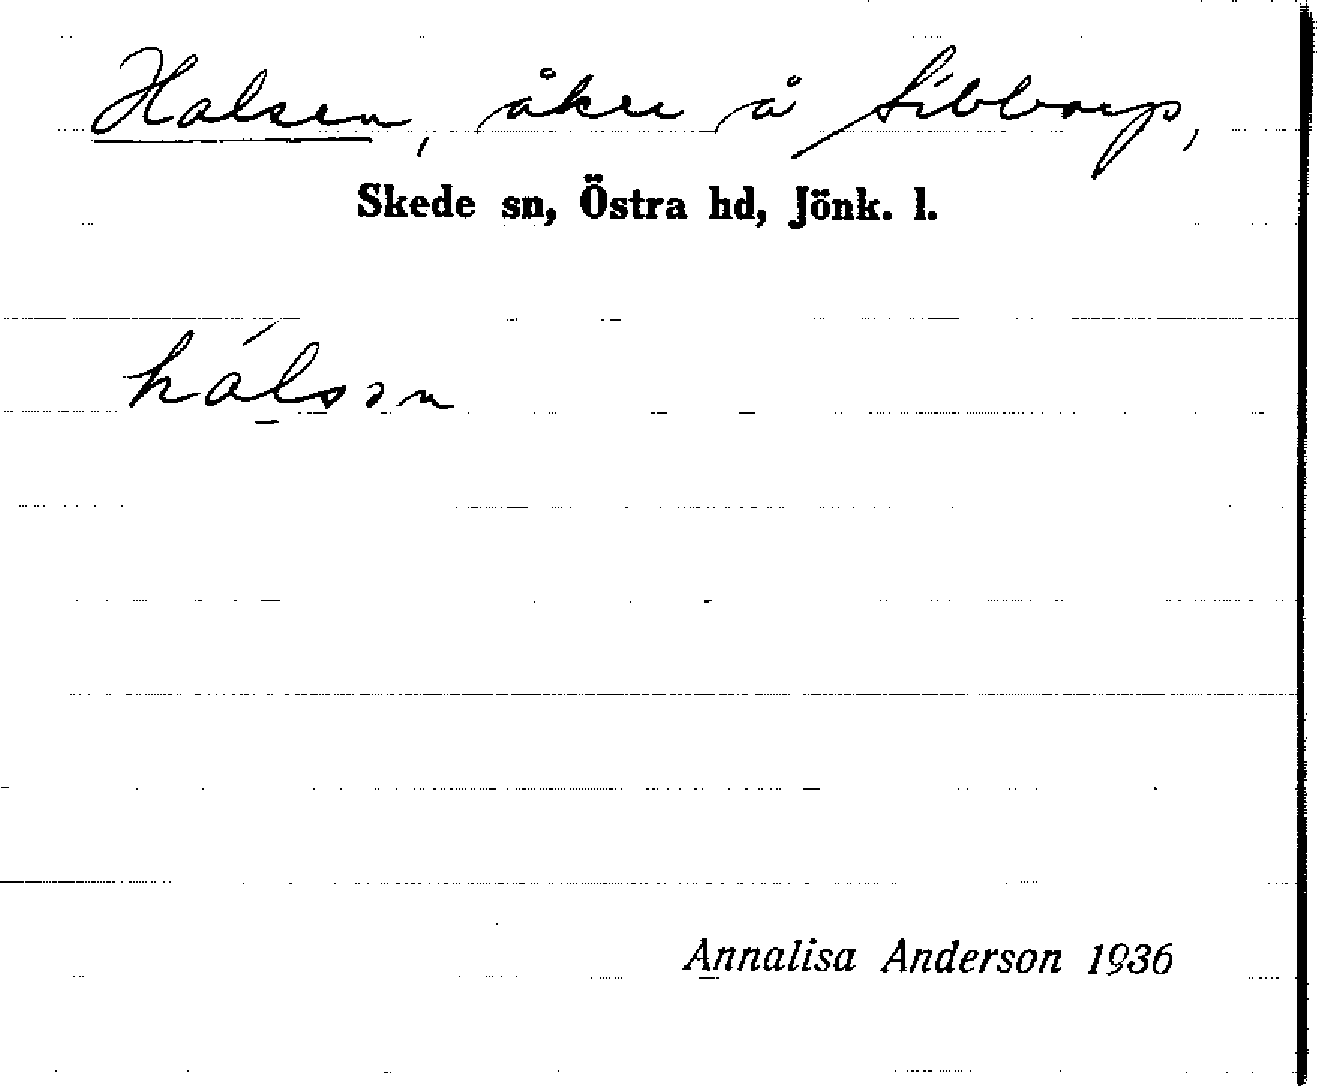 Halsen, åker å Sibborp,
Skede sn, Östra hd, Jönk. l.
hálsən
Annalisa Anderson 1936